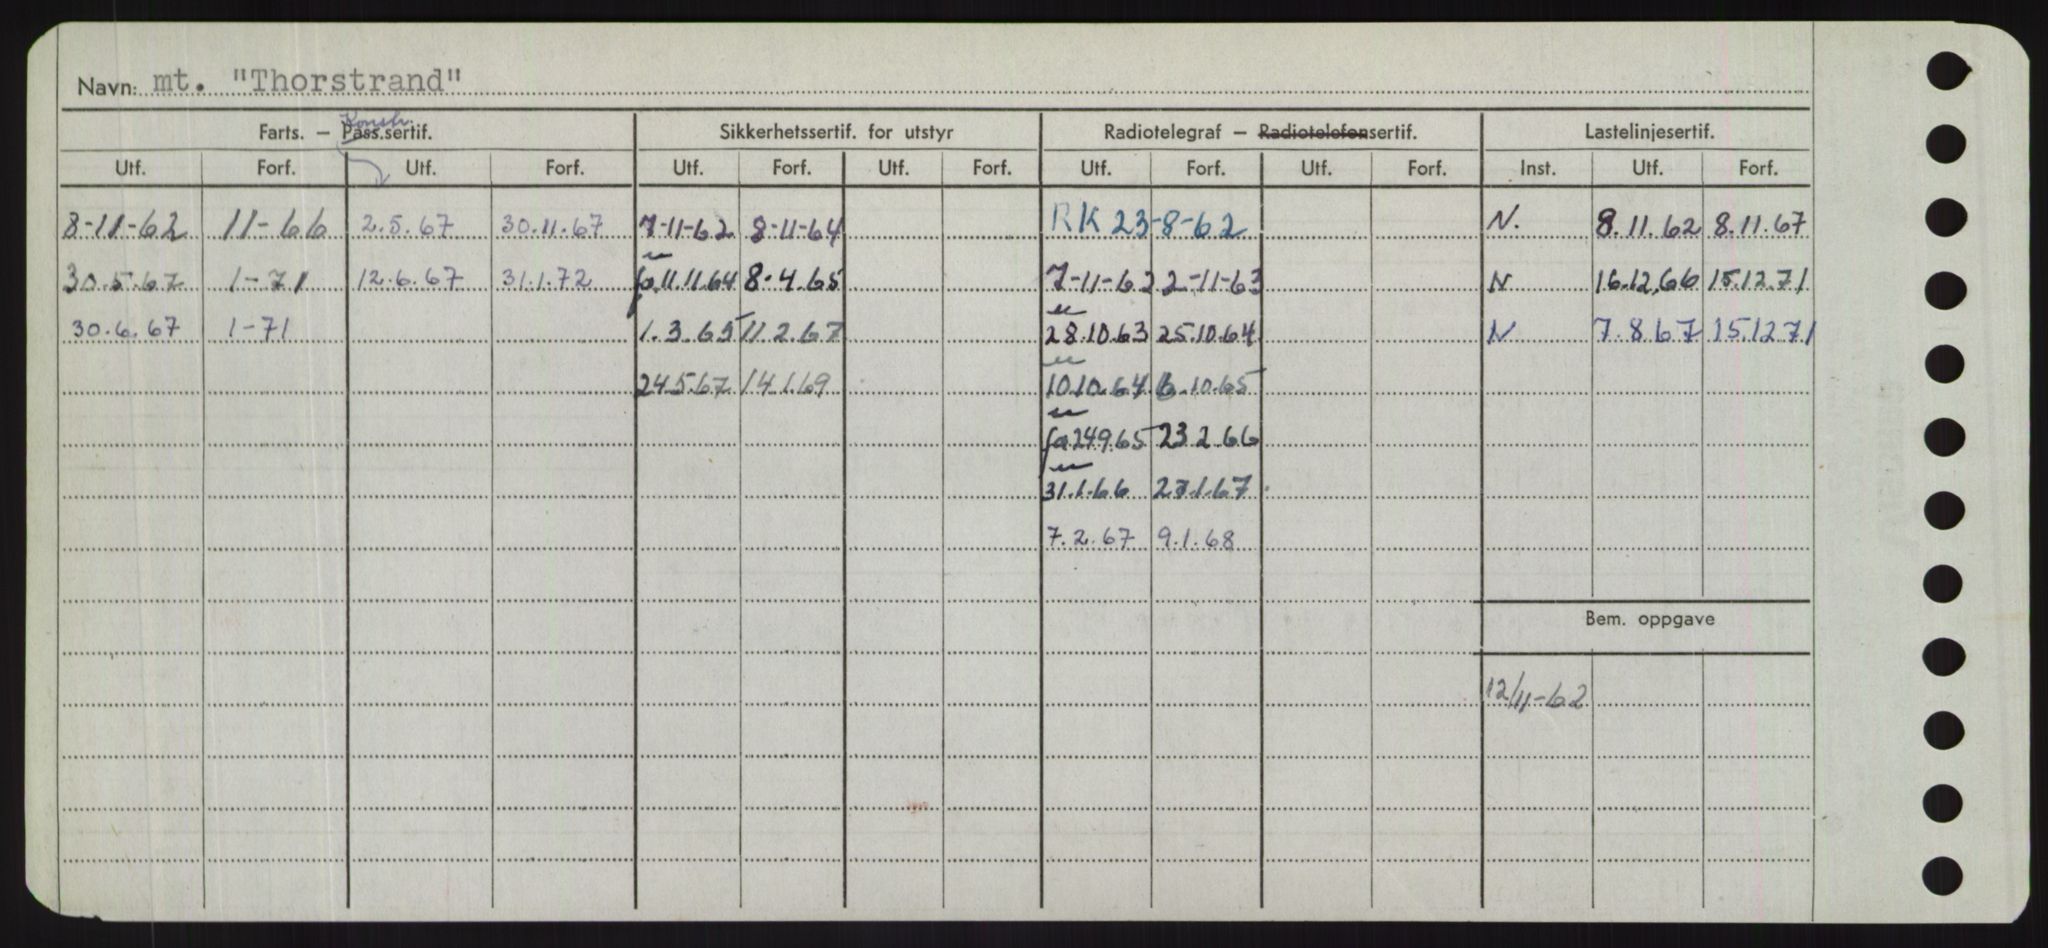 Navn: mt. "Thorstrand"
Konstr.
Farts. – Pass.sertif. Sikkerhetssertif. for utstyr Radiotelegraf – Radiotelefonsertif. Lastelinjesertif.
Utf. Forf. Utf. Forf. Utf. Forf. Utf. Forf. Utf. Forf. Utf. Forf. Inst. Utf. Forf.
8-11-62 11-66 2.5.67 30.11.67 7-11-62 8-11-64 RK 23-8-62 N. 8.11.62 8.11.67
30.5.67 1-71 12.6.67 31.1.72 fo.11.11.64 8.4.65 7-11-62 2-11-63 N 16.12.66 15.12.71
30.6.67 1-71 1.3.65 11.2.67 28.10.63 25.10.64 N 7.8.67 15.12.71
24.5.67 14.1.69 10.10.64 6.10.65
fo 24.9.65 23.2.66
31.1.66 23.1.67
7.2.67 9.1.68
Bem. oppgave
12/11-62